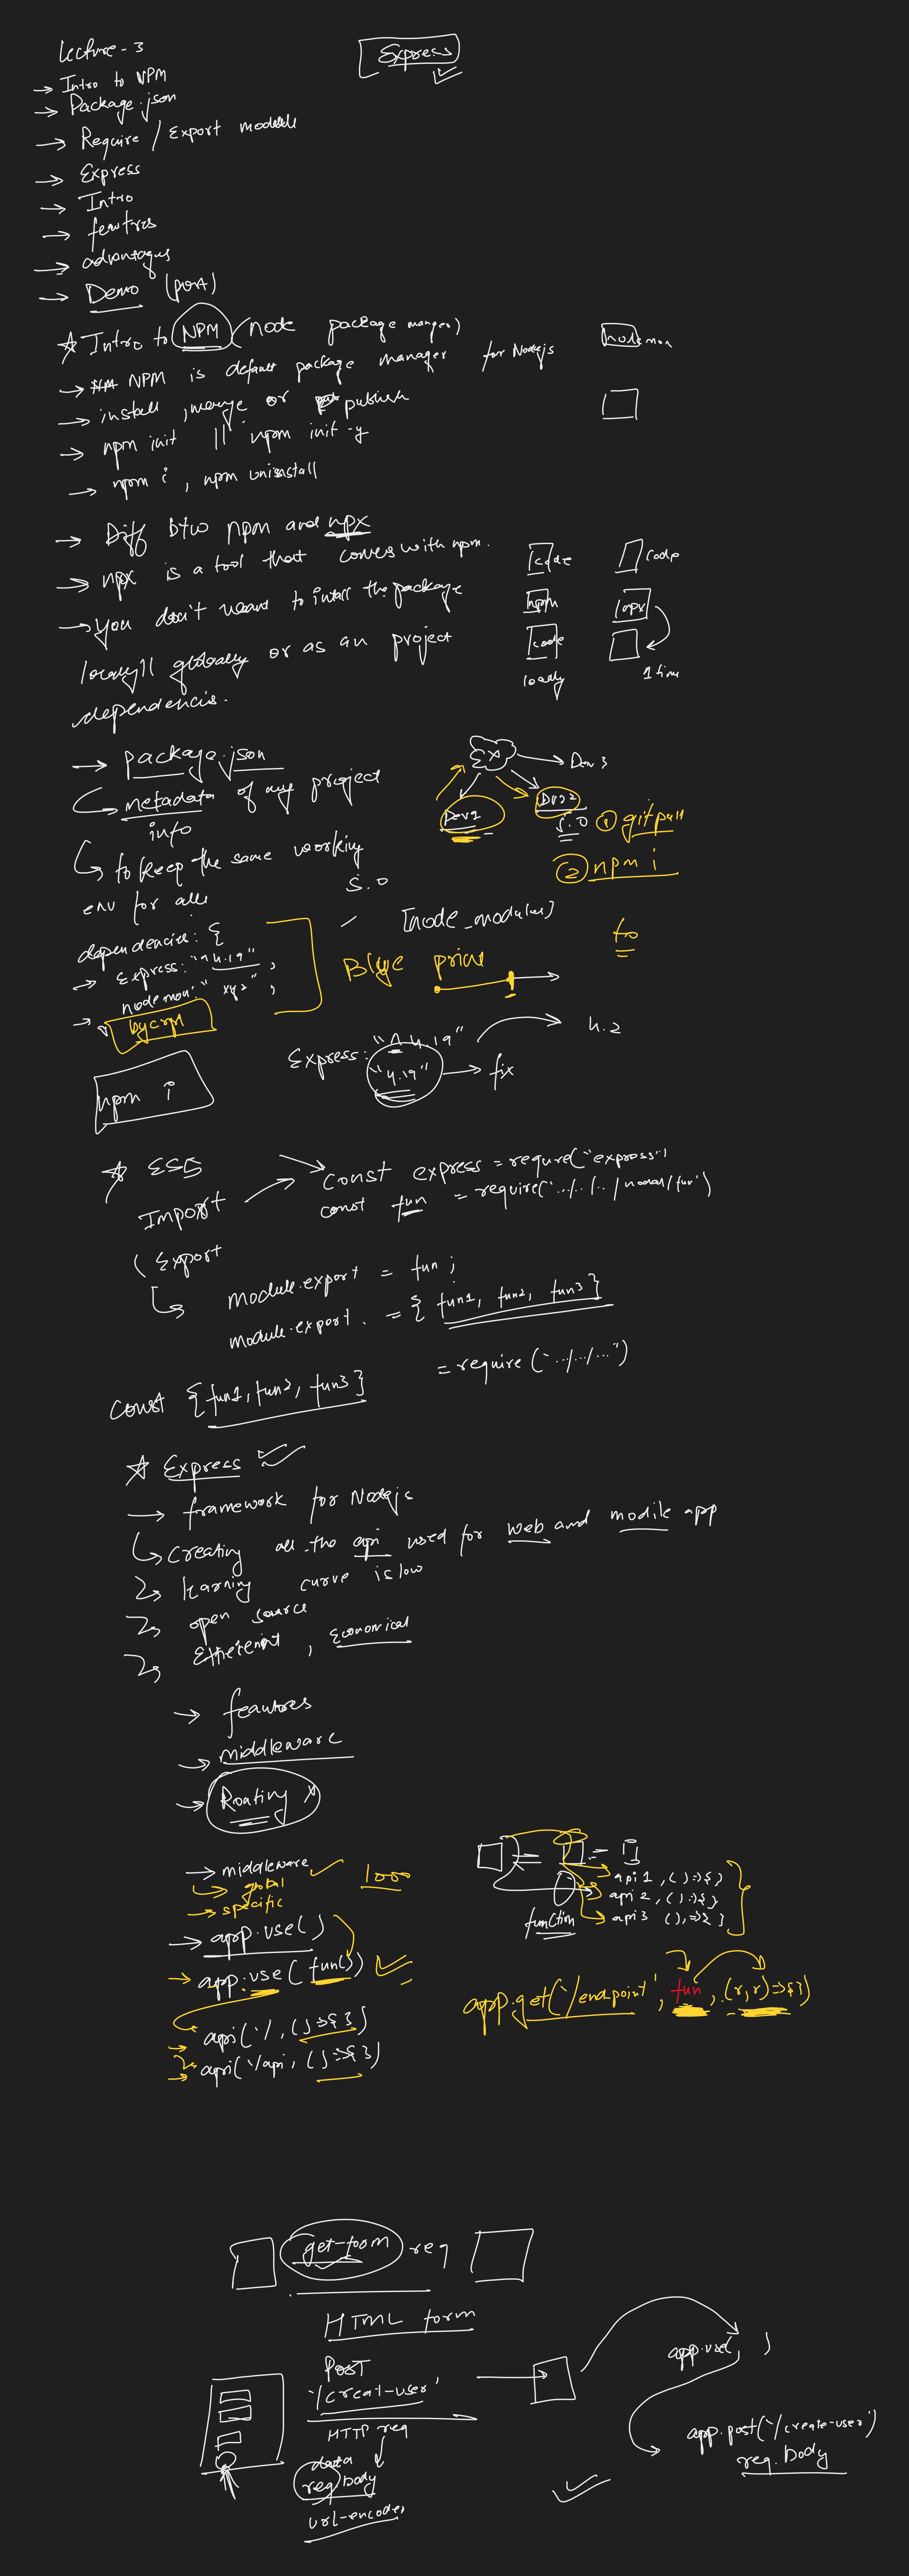 Lecture-3
Express
→ Intro to NPM
→ Package.json
→ Require / Export module
→ Express
→ Intro
→ features
→ advantages
→ Demo (port)
☆ Intro to NPM (node package manger)
nodemon
→ NPM is default package manager for Nodejs
→ install, mange or publish
→ npm init || npm init -y
→ npm i, npm uninstall
→ Diff btw npm and npx
→ npx is a tool that comes with npm.
→ you don't want to intall the package
locally || globally or as an project
dependencis.
code code
npm npx
code
locally 1 time
→ package.json
metadata of any project
info
to keep the same working
env for all
5.0
Dev 3
Dev1 Dev2
5.0 ① git pull
② npm i
dependencies: {
→ Express: "^4.19",
nodemon: "xyz",
→ bycrpt
[node_modules]
Blue print
to
Express: "^4.19" 4.2
"4.19" → fix
npm i
☆ ES5
Import → const express = requre("express")
const fun = require('../../../modal/fun')
(Export
module.export = fun;
module.export. = { fun1, fun2, fun3}
const {fun1, fun2, fun3} = require ("../../...")
☆ Express
→ framework for Nodejs
creating all the api used for web and modile app
learning curve is low
open source
Effieient, Economical
→ features
→ middleware
→ Routing
→ middleware
→ global
→ specific
1000
→ app.use()
→ app.use(fun())
→ api('/, ()=>{})
→ api('/api, ()=>{})
api 1, ()=>{}
api 2, ()=>{}
api 3 (),=>{}
function
app.get('/endpoint', fun, (r,r)=>{})
get-form req
HTML form
POST
'/creat-user'
HTTP req
data
req body
url-encoded
app.use( )
app.post('/create-user')
req.body